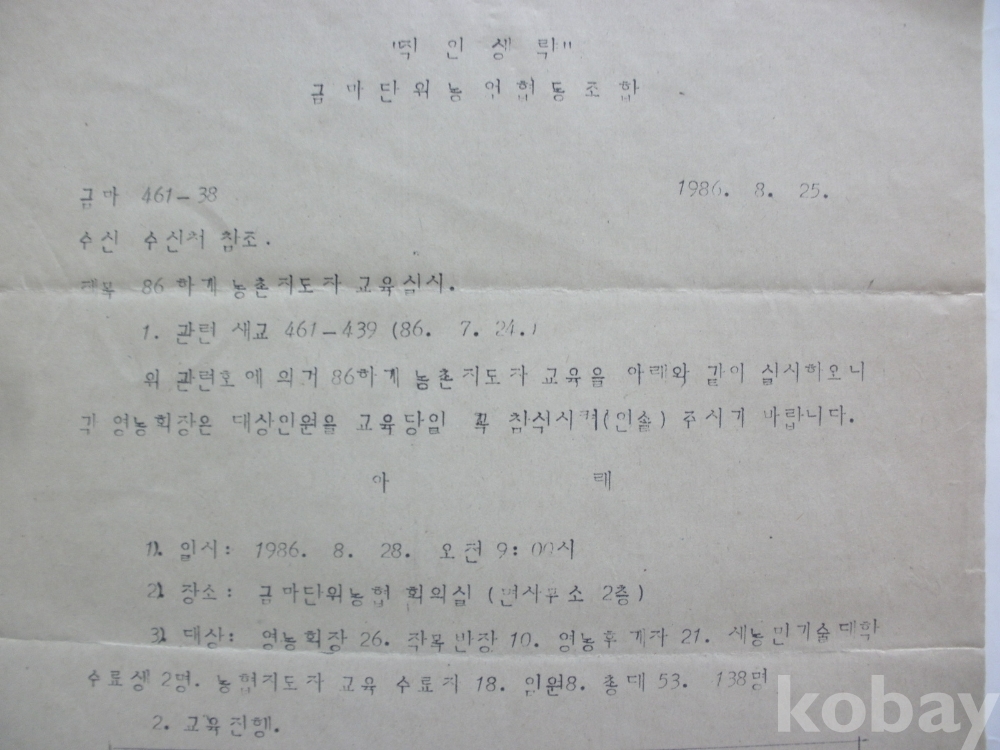 "직 인 생 략"
금 마 단 위 농 업 협 동 조 합
금마 461-38 1986. 8. 25.
수신 수신처 참조.
제목 86 하계 농촌지도자 교육실시.
1. 관련 새교 461-439 (86. 7. 24.)
위 관련호에 의거 86하계 농촌지도자 교육을 아래와 같이 실시하오니
각 영농회장은 대상인원을 교육당일 꼭 참석시켜(인솔) 주시기 바랍니다.
아 래
1). 일시: 1986. 8. 28. 오전 9: 00시
2). 장소: 금마단위농협 회의실 (면사무소 2층)
3). 대상: 영농회장 26. 작목반장 10. 영농후계자 21. 새농민기술대학
수료생 2명. 농협지도자 교육 수료자 18. 임원8. 총대 53. 138명
2. 교육진행.
kobay